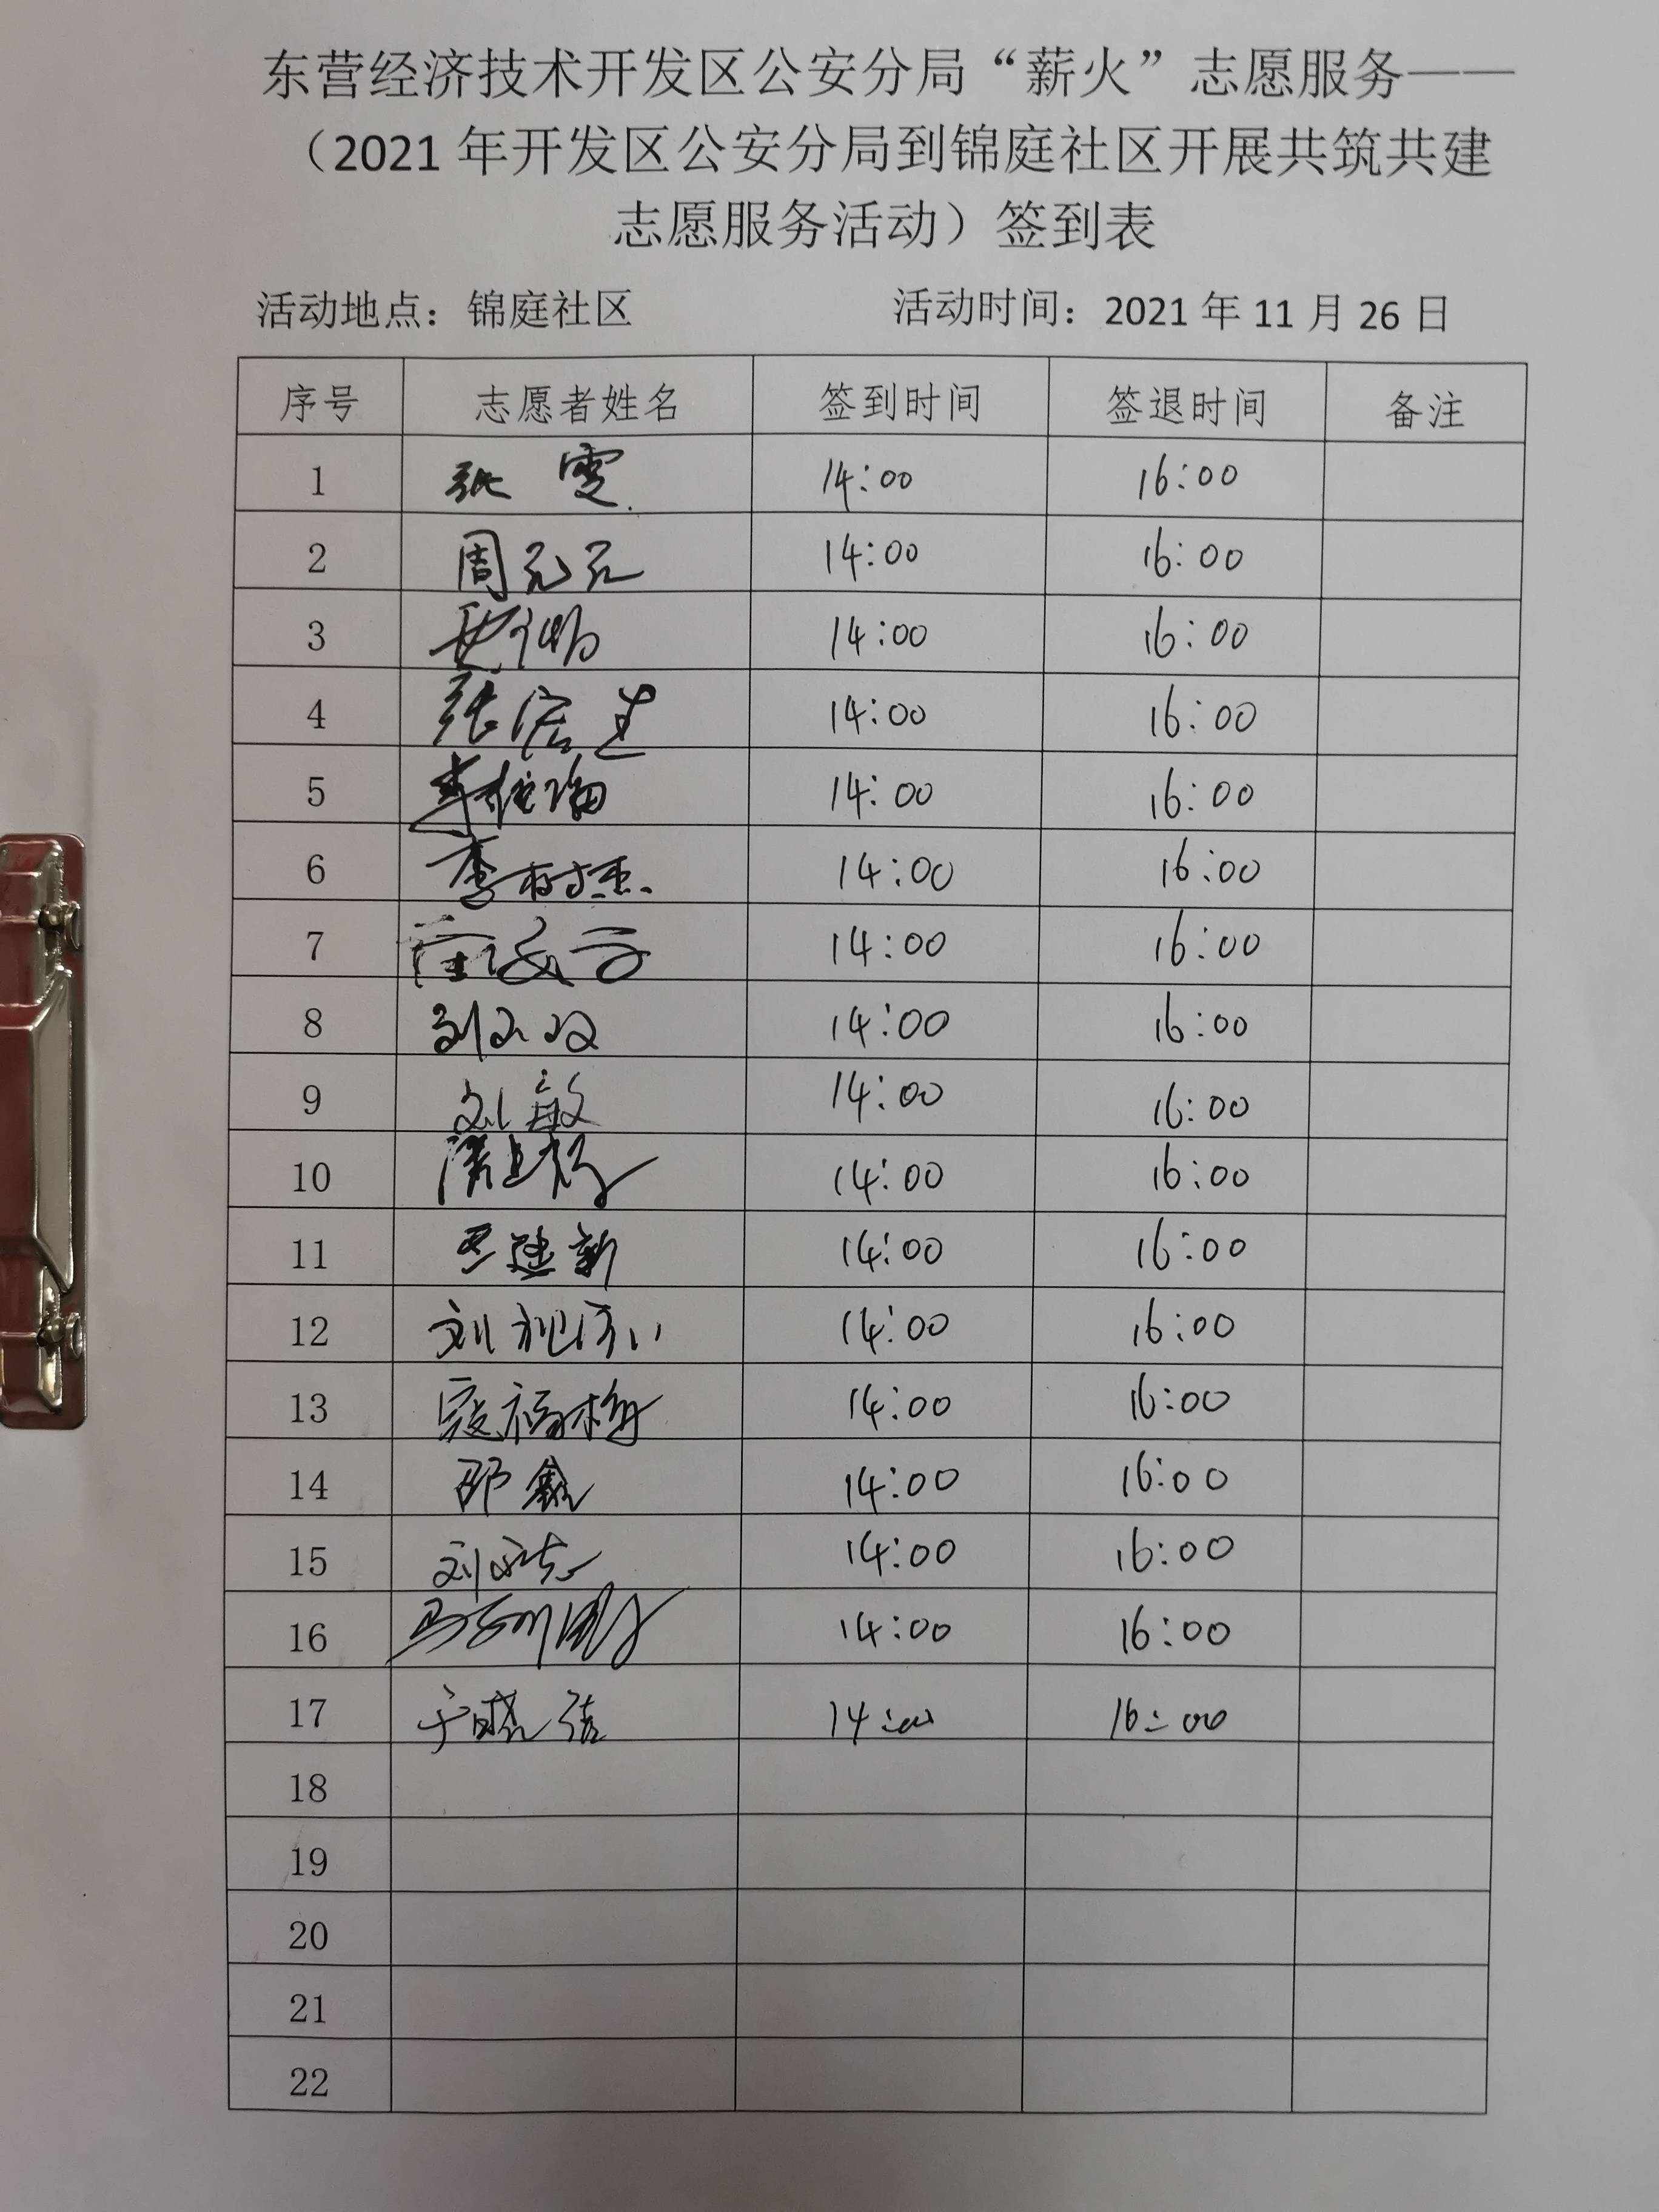 东营经济技术开发区公安分局“薪火”志愿服务——
（2021年开发区公安分局到锦庭社区开展共筑共建
志愿服务活动）签到表
活动地点：锦庭社区 活动时间：2021年11月26日
序号 志愿者姓名 签到时间 签退时间 备注
1 张雯 14:00 16:00
2 周元元 14:00 16:00
3 14:00 16:00
4 张 14:00 16:00
5 14:00 16:00
6 李树杰 14:00 16:00
7 14:00 16:00
8 刘 14:00 16:00
9 刘敏 14:00 16:00
10 14:00 16:00
11 建新 14:00 16:00
12 刘 14:00 16:00
13 寇福梅 14:00 16:00
14 邵鑫 14:00 16:00
15 刘 14:00 16:00
16 马 14:00 16:00
17 于晓洁 14:00 16:00
18
19
20
21
22